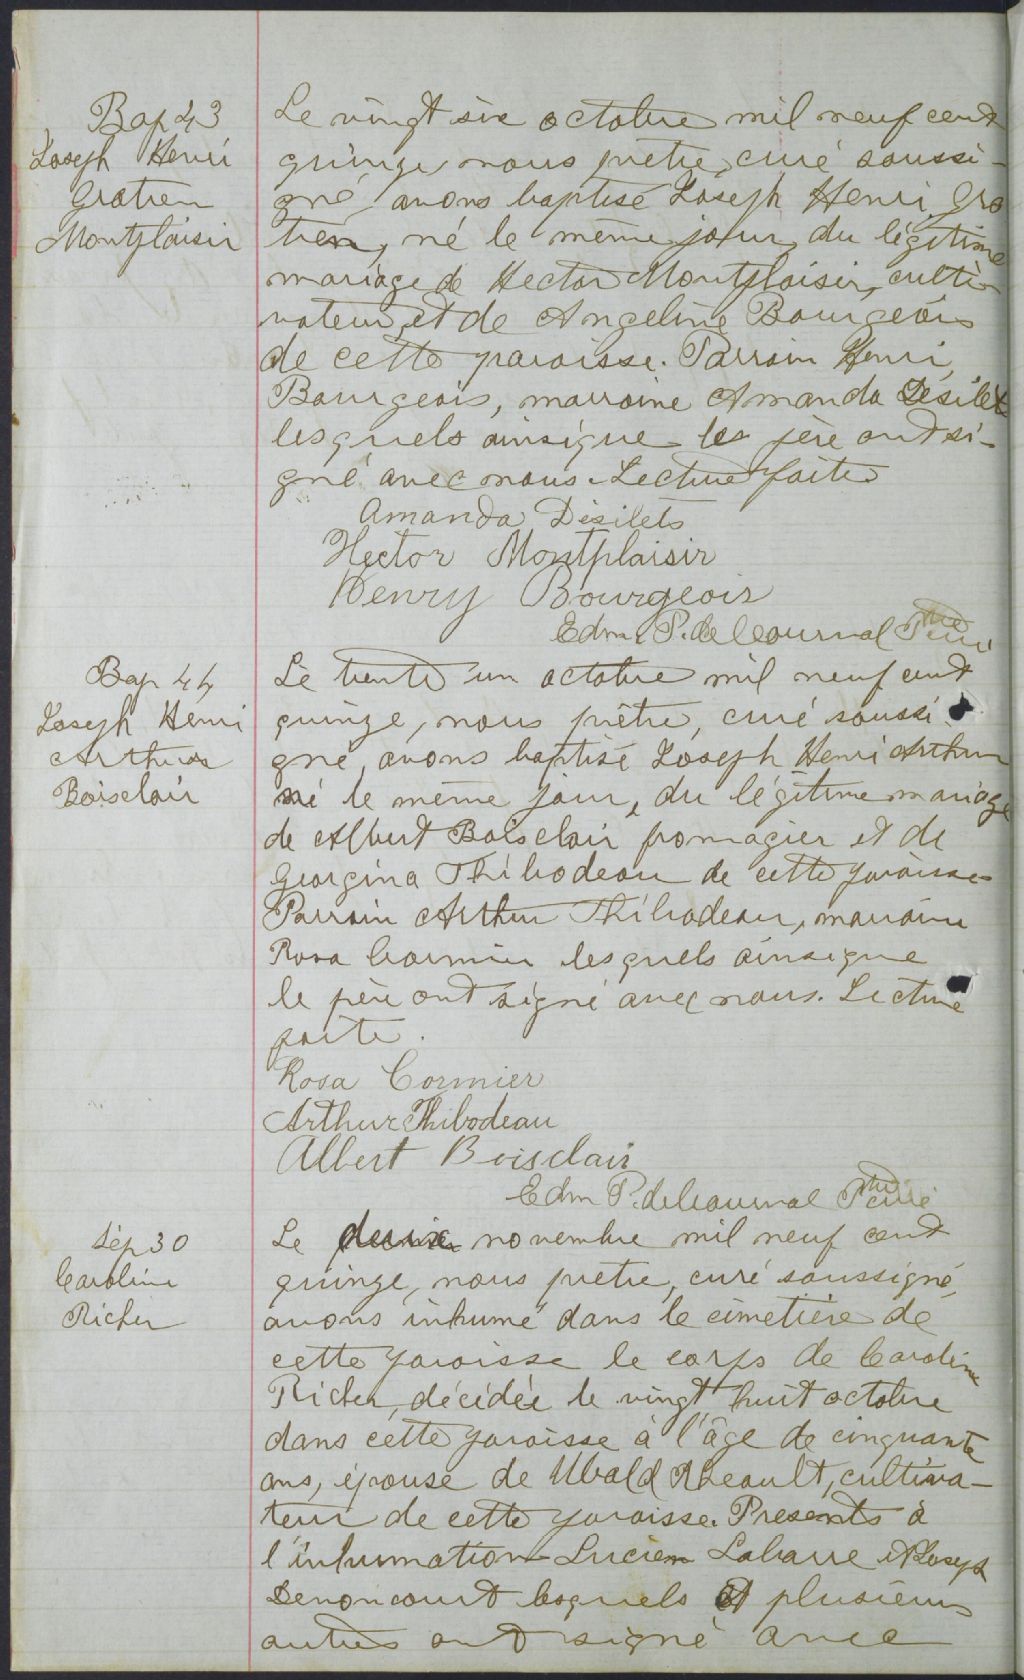 Bap 43
Joseph Henri
Gratien
Montplaisir
Le vingt six octobre mil neuf cent
quinze, nous prêtre, curé soussi-
gné, avons baptisé Joseph Henri Gra
tien, né le même jour, du légitime
mariage de Hector Montplaisir, culti-
vateur et de Angeline Bourgeois
de cette paroisse. Parrain Henri
Bourgeois, marraine Amanda Désilets
lesquels ainsique le père ont si-
gné avec nous. Lecture faite
Amanda Désilets
Hector Montplaisir
Henry Bourgeois
Edm. P. de Courval Ptre curé
Bap 44
Joseph Henri
Arthur
Boisclair
Le trente un octobre mil neuf cent
quinze, nous prêtre, curé soussi-
gné, avons baptisé Joseph Henri Arthur
né le même jour, du légitime mariage
de Albert Boisclair fromagier et de
Georgina Thibodeau de cette paroisse
Parrain Arthur Thibodeau, marraine
Rosa Cormier lesquels ainsique
le père ont signé avec nous. Lecture
faite.
Rosa Cormier
Arthur Thibodeau
Albert Boisclair
Edm P. de Courval Ptre curé
Sép 30
Caroline
Richer
Le deux novembre mil neuf cent
quinze, nous prêtre, curé soussigné,
avons inhumé dans le cimetière de
cette paroisse le corps de Caroline
Richer, décédée le vingt huit octobre
dans cette paroisse à l'âge de cinquante
ans, épouse de Ubald Rheault, cultiva-
teur de cette paroisse. Présents à
l'inhumation Lucien Labarre et Joseph
Denoncourt lesquels et plusieurs
autres ont signé avec